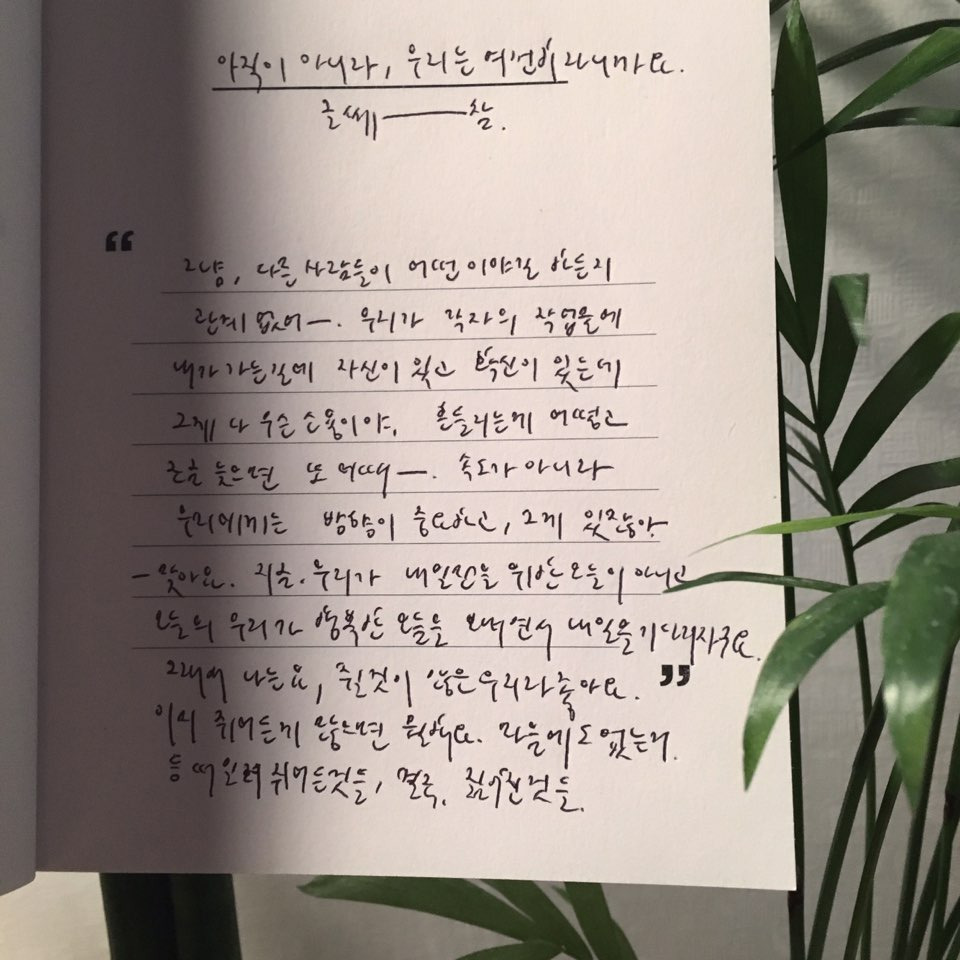 아직이 아니라, 우리는 여전히라니까요.
글쎄 — 참.
“
그냥, 다른 사람들이 어떤 이야길 하든지
관계 없어 —. 우리가 각자의 작업물에
내가 가는길에 자신이 있고 확신이 있는데
그게 다 무슨 소용이야. 흔들리는게 어떻고
조금 늦으면 또 어때 —. 속도가 아니라
우리에게는 방향이 중요하고, 그게 있잖아.
— 맞아요. 지금. 우리가 내일만을 위한 오늘이 아니고
오늘의 우리가 행복한 오늘을 보내면서 내일을 기다리자구요.
그래서 나는요, 쥘것이 많은 우리라 좋아요. ”
이미 쥐어든게 많으면 뭘해요. 마음에도 없는거.
등 떠밀려 쥐어든것들, 결국, 짊어진 것들.